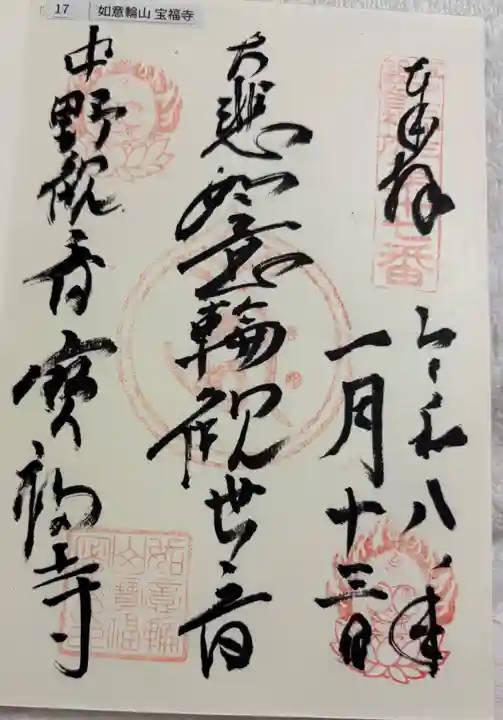 17 如意輪山 宝福寺
奉拝
令和八年
一月十三日
大悲如意輪観世音
中野観音 寳福寺
如意輪
山寶福